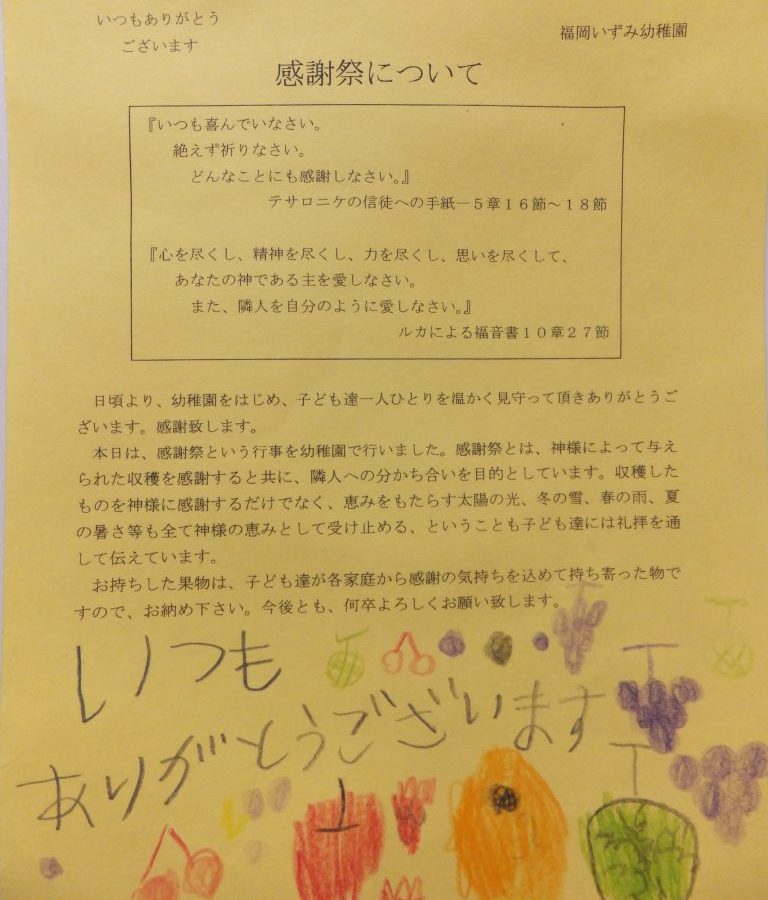 いつもありがとう
ございます
福岡いずみ幼稚園
感謝祭について
『いつも喜んでいなさい。
絶えず祈りなさい。
どんなことにも感謝しなさい。』
テサロニケの信徒への手紙一５章１６節～１８節
『心を尽くし、精神を尽くし、力を尽くし、思いを尽くして、
あなたの神である主を愛しなさい。
また、隣人を自分のように愛しなさい。』
ルカによる福音書１０章２７節
日頃より、幼稚園をはじめ、子ども達一人ひとりを温かく見守って頂きありがとうご
ざいます。感謝致します。
本日は、感謝祭という行事を幼稚園で行いました。感謝祭とは、神様によって与え
られた収穫を感謝すると共に、隣人への分かち合いを目的としています。収穫した
ものを神様に感謝するだけでなく、恵みをもたらす太陽の光、冬の雪、春の雨、夏
の暑さ等も全て神様の恵みとして受け止める、ということも子ども達には礼拝を通
して伝えています。
お持ちした果物は、子ども達が各家庭から感謝の気持ちを込めて持ち寄った物で
すので、お納め下さい。今後とも、何卒よろしくお願い致します。
いつも
ありがとうございます